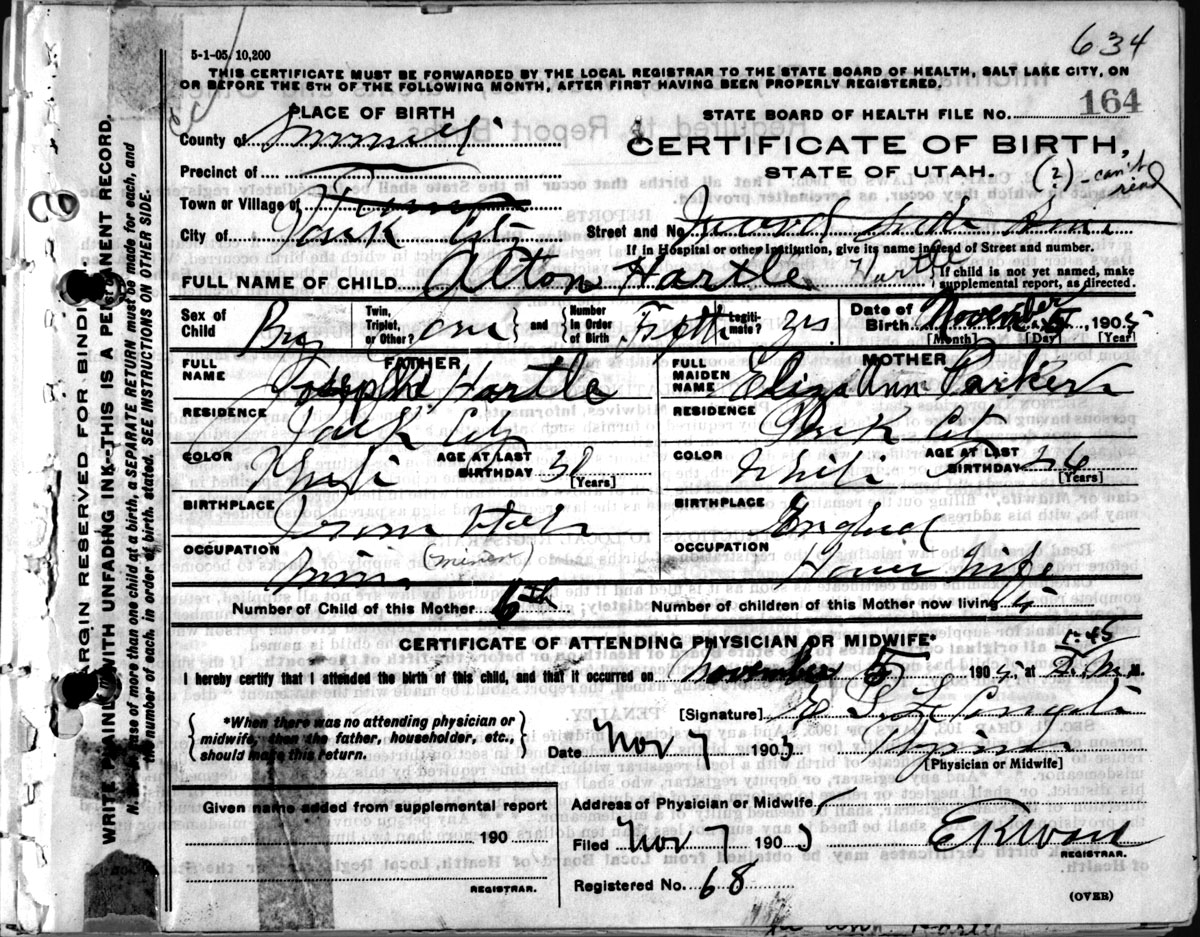 634
5-1-05. 10,200
THIS CERTIFICATE MUST BE FORWARDED BY THE LOCAL REGISTRAR TO THE STATE BOARD OF HEALTH, SALT LAKE CITY, ON
OR BEFORE THE 5TH OF THE FOLLOWING MONTH, AFTER FIRST HAVING BEEN PROPERLY REGISTERED.
PLACE OF BIRTH
STATE BOARD OF HEALTH FILE NO. 164
County of Summit
CERTIFICATE OF BIRTH,
Precinct of
STATE OF UTAH.
(2) - can't read
Town or Village of
City of Park City
Street and No.
If in Hospital or other Institution, give its name instead of Street and number.
FULL NAME OF CHILD Alton Hartle Hartle
If child is not yet named, make supplemental report, as directed.
Sex of Child Boy Twin, Triplet, or Other? one and Number in Order of Birth Fifth Legitimate? yes Date of Birth November 5 1905
[Month] [Day] [Year]
FATHER
FULL NAME Joseph Hartle
MOTHER
FULL MAIDEN NAME Eliza Ann Parker
RESIDENCE Park City
RESIDENCE Park City
COLOR White AGE AT LAST BIRTHDAY 30 [Years]
COLOR White AGE AT LAST BIRTHDAY 26 [Years]
BIRTHPLACE Utah
BIRTHPLACE England
OCCUPATION (miner)
OCCUPATION House Wife
Number of Child of this Mother 6th
Number of children of this Mother now living 5
CERTIFICATE OF ATTENDING PHYSICIAN OR MIDWIFE*
I hereby certify that I attended the birth of this child, and that it occurred on November 5 1905 at 1-45 M.
*When there was no attending physician or midwife, then the father, householder, etc., should make this return.
[Signature]
Date Nov 7 1905
[Physician or Midwife]
Given name added from supplemental report
190
REGISTRAR.
Address of Physician or Midwife
Filed Nov 7 1905
REGISTRAR.
Registered No. 68
(OVER)
MARGIN RESERVED FOR BINDING
WRITE PLAINLY WITH UNFADING INK--THIS IS A PERMANENT RECORD.
N. B.--In case of more than one child at a birth, a SEPARATE RETURN must be made for each, and
the number of each, in order of birth, stated. SEE INSTRUCTIONS ON OTHER SIDE.